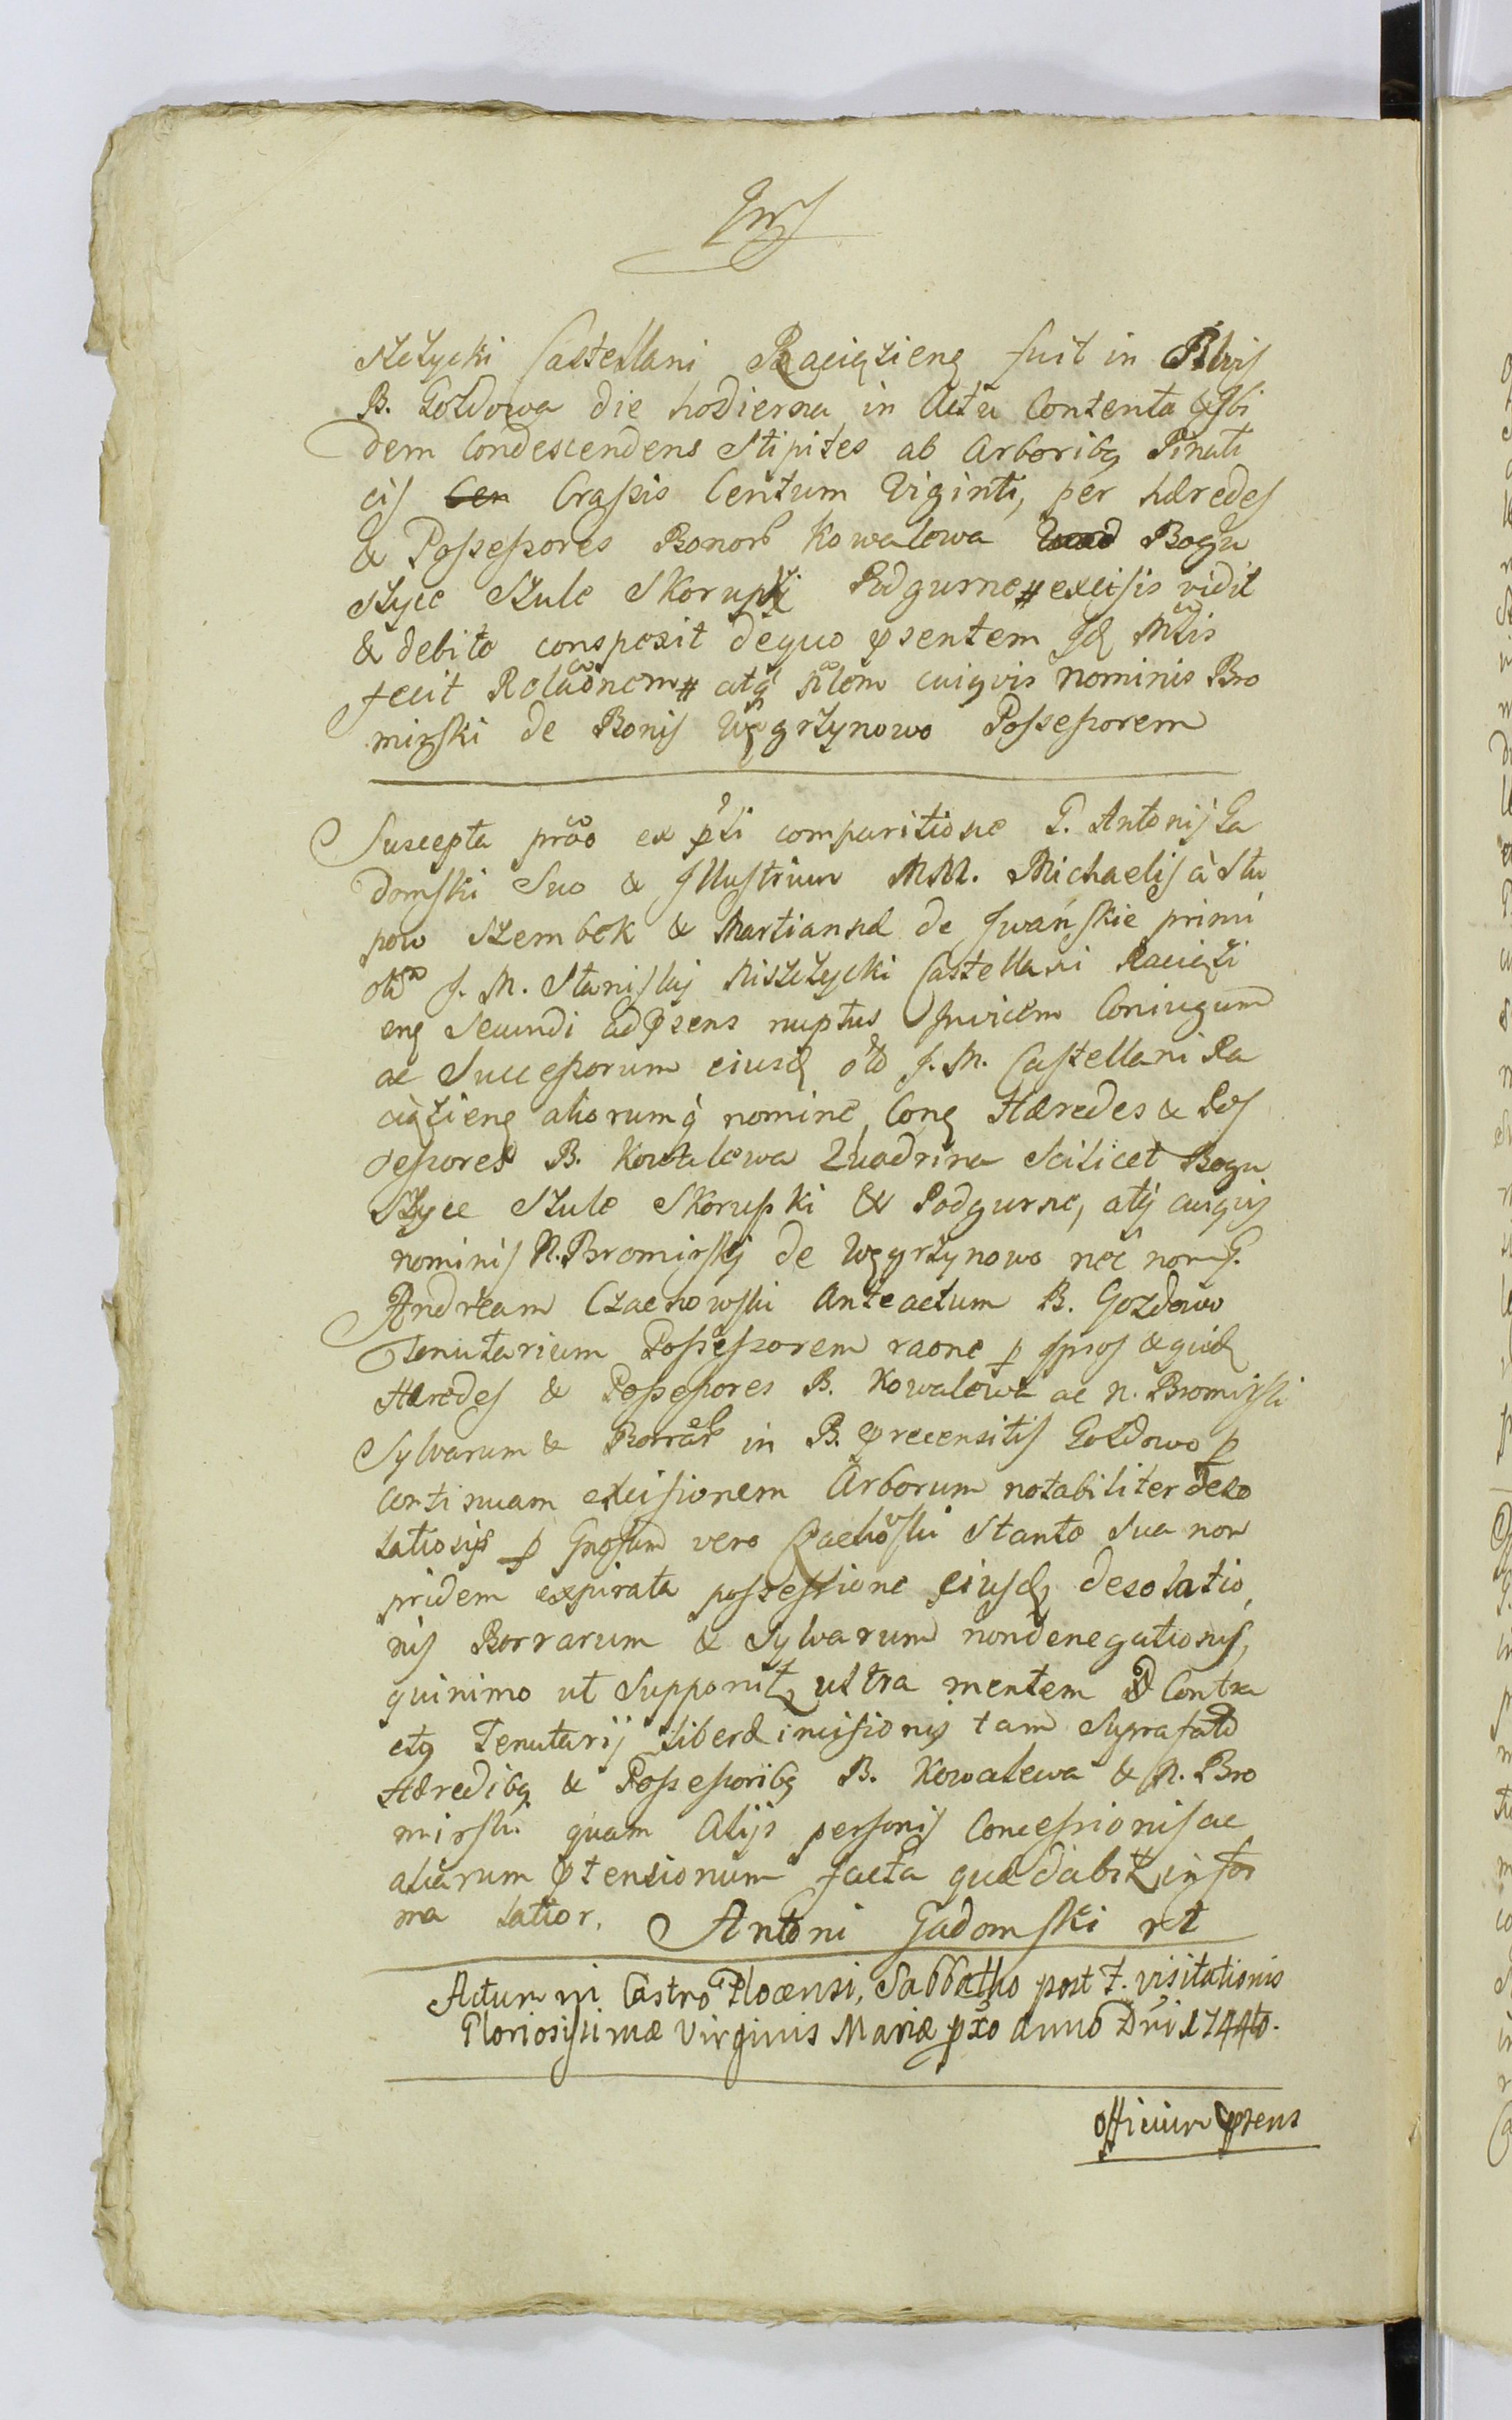 szczycki Castellani Raciąźieng fuit in Sylvis
B. Gozdowa die hodierna in Actu Contenta & Ibi
dem Condescendens Stipites ab Arboribq Pinati
cis Crassis Centum Viginti, per hæredes
& Possessores Bonor Kowalowa Bogu
szyce Szule Skorupki Podgurne # excisis vidit
& debite conspexit dequo psentem Idq Mtlis
fecit Relaōnem # atq cuiqvis Nominis Bro
mirski de Bonis Węgrzynowo Possessorem
Suscepta prōo ex pti comparitione G. Antonij Ga
domski Suo & Illustrium MM. Michaelis à Słu
pow Szembek & Martiannæ de Iwańskie primi
olim J. M. Stanislaj Miszczycki Castellani Raciąźi
eng Secundi ad psens nuptus Invicem Coniugum
ac Successorum eiusdq olim J. M. Castellani Ra
ciąźieng aliorumq nomine, Cong Hæredes & Pos
sessores B. Kowalewa Quadrina Scilicet Bogu
szyce Szule Skorupki & Podgurne, atq cuiqvis
nominis N. Bromirskij de Węgrzynowo nec non G.
Andream Czachowski Anteactum B. Gozdowo
Tenutarium Possessorem raone p Ipsos æquidq
Hæredes & Possessores B. Kowalewa ac N. Bromirski
Sylvarum & Borrar in B. precensitis Gozdowo p
Continuam excisionem Arborum notabiliter deso
lationis p Gnosum vero Czachowski Stante Sua non
pridem expirata possessione eiusdq desolatio,
nis Borrarum & Sylvarum nondenegationis,
quinimo ut Supponitq ultra mentem Contra
ctq Tenutarij liberæ incisionis tam Suprafato
Hæredibq & Possessoribq B. Kowalewa & N. Bro
mirski quam Alijs personis Concessionis ac
aliarum ptensionum facta quæ dabitq in for
ma latior. Antoni Gadomski rt
Actum in Castro Plocensi, Sabbatho post F. visitationis
Gloriosissimæ Virginis Mariæ pxo anno Dni 1744to.
officium psens